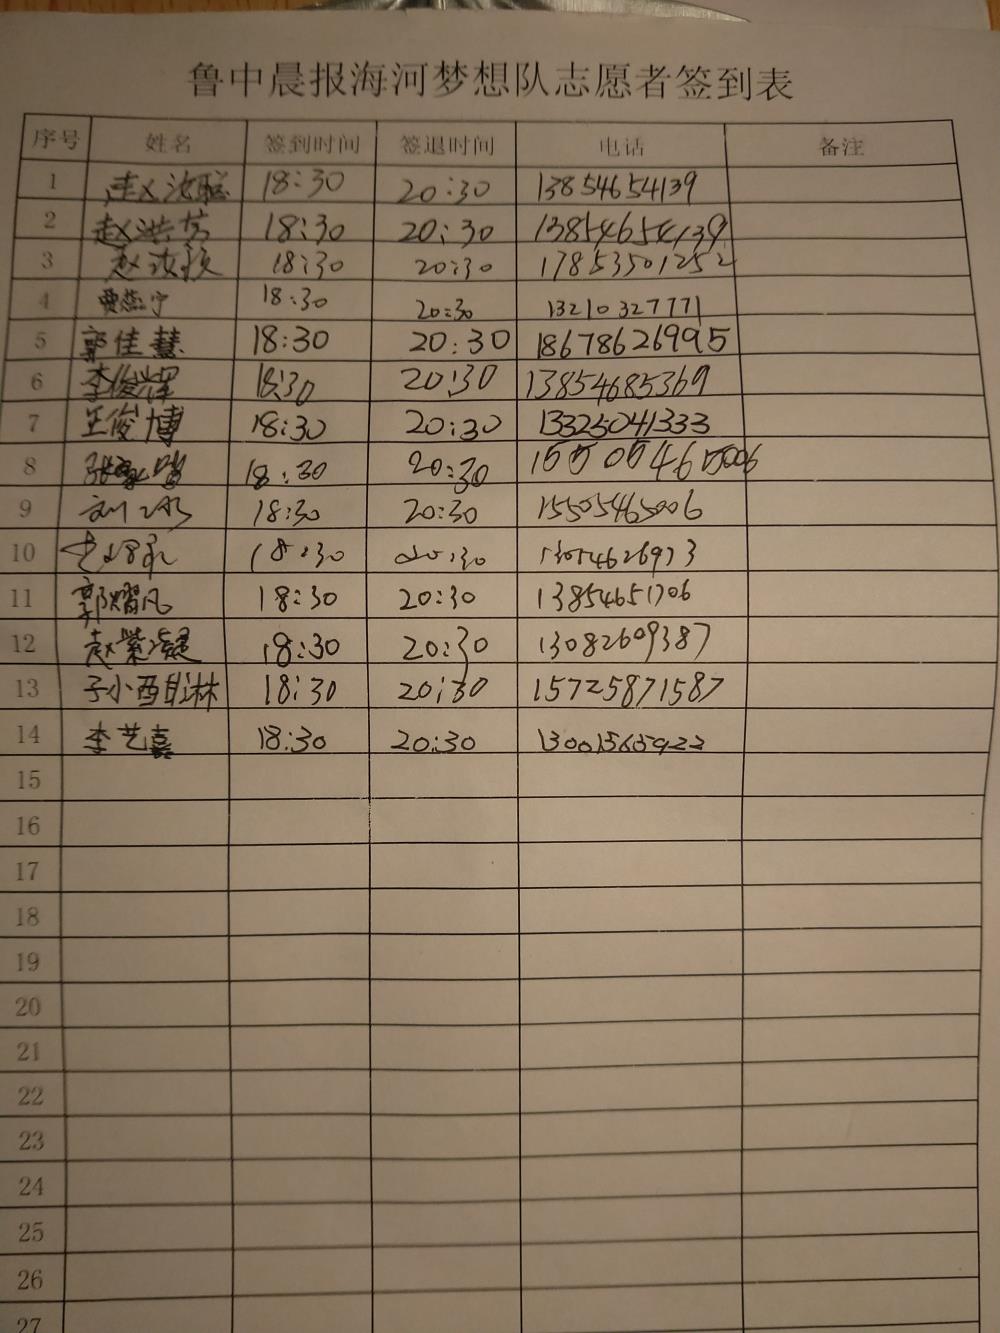 鲁中晨报海河梦想队志愿者签到表
序号 姓名 签到时间 签退时间 电话 备注
1 赵汝聪 18:30 20:30 13854654139
2 赵洪芳 18:30 20:30 13854654139
3 赵汝 18:30 20:30 17853501252
4 贾燕宁 18:30 20:30 13210327771
5 郭佳慧 18:30 20:30 18678626995
6 李俊辉 18:30 20:30 13854685369
7 王俊博 18:30 20:30 13325041333
8 张 18:30 20:30 15505465006
9 刘冰 18:30 20:30 15505465006
10 18:30 20:30
11 郭熠凡 18:30 20:30 13854651706
12 赵紫凝 18:30 20:30 13082609387
13 子小西 林 18:30 20:30 15725871587
14 李艺嘉 18:30 20:30
15
16
17
18
19
20
21
22
23
24
25
26
27